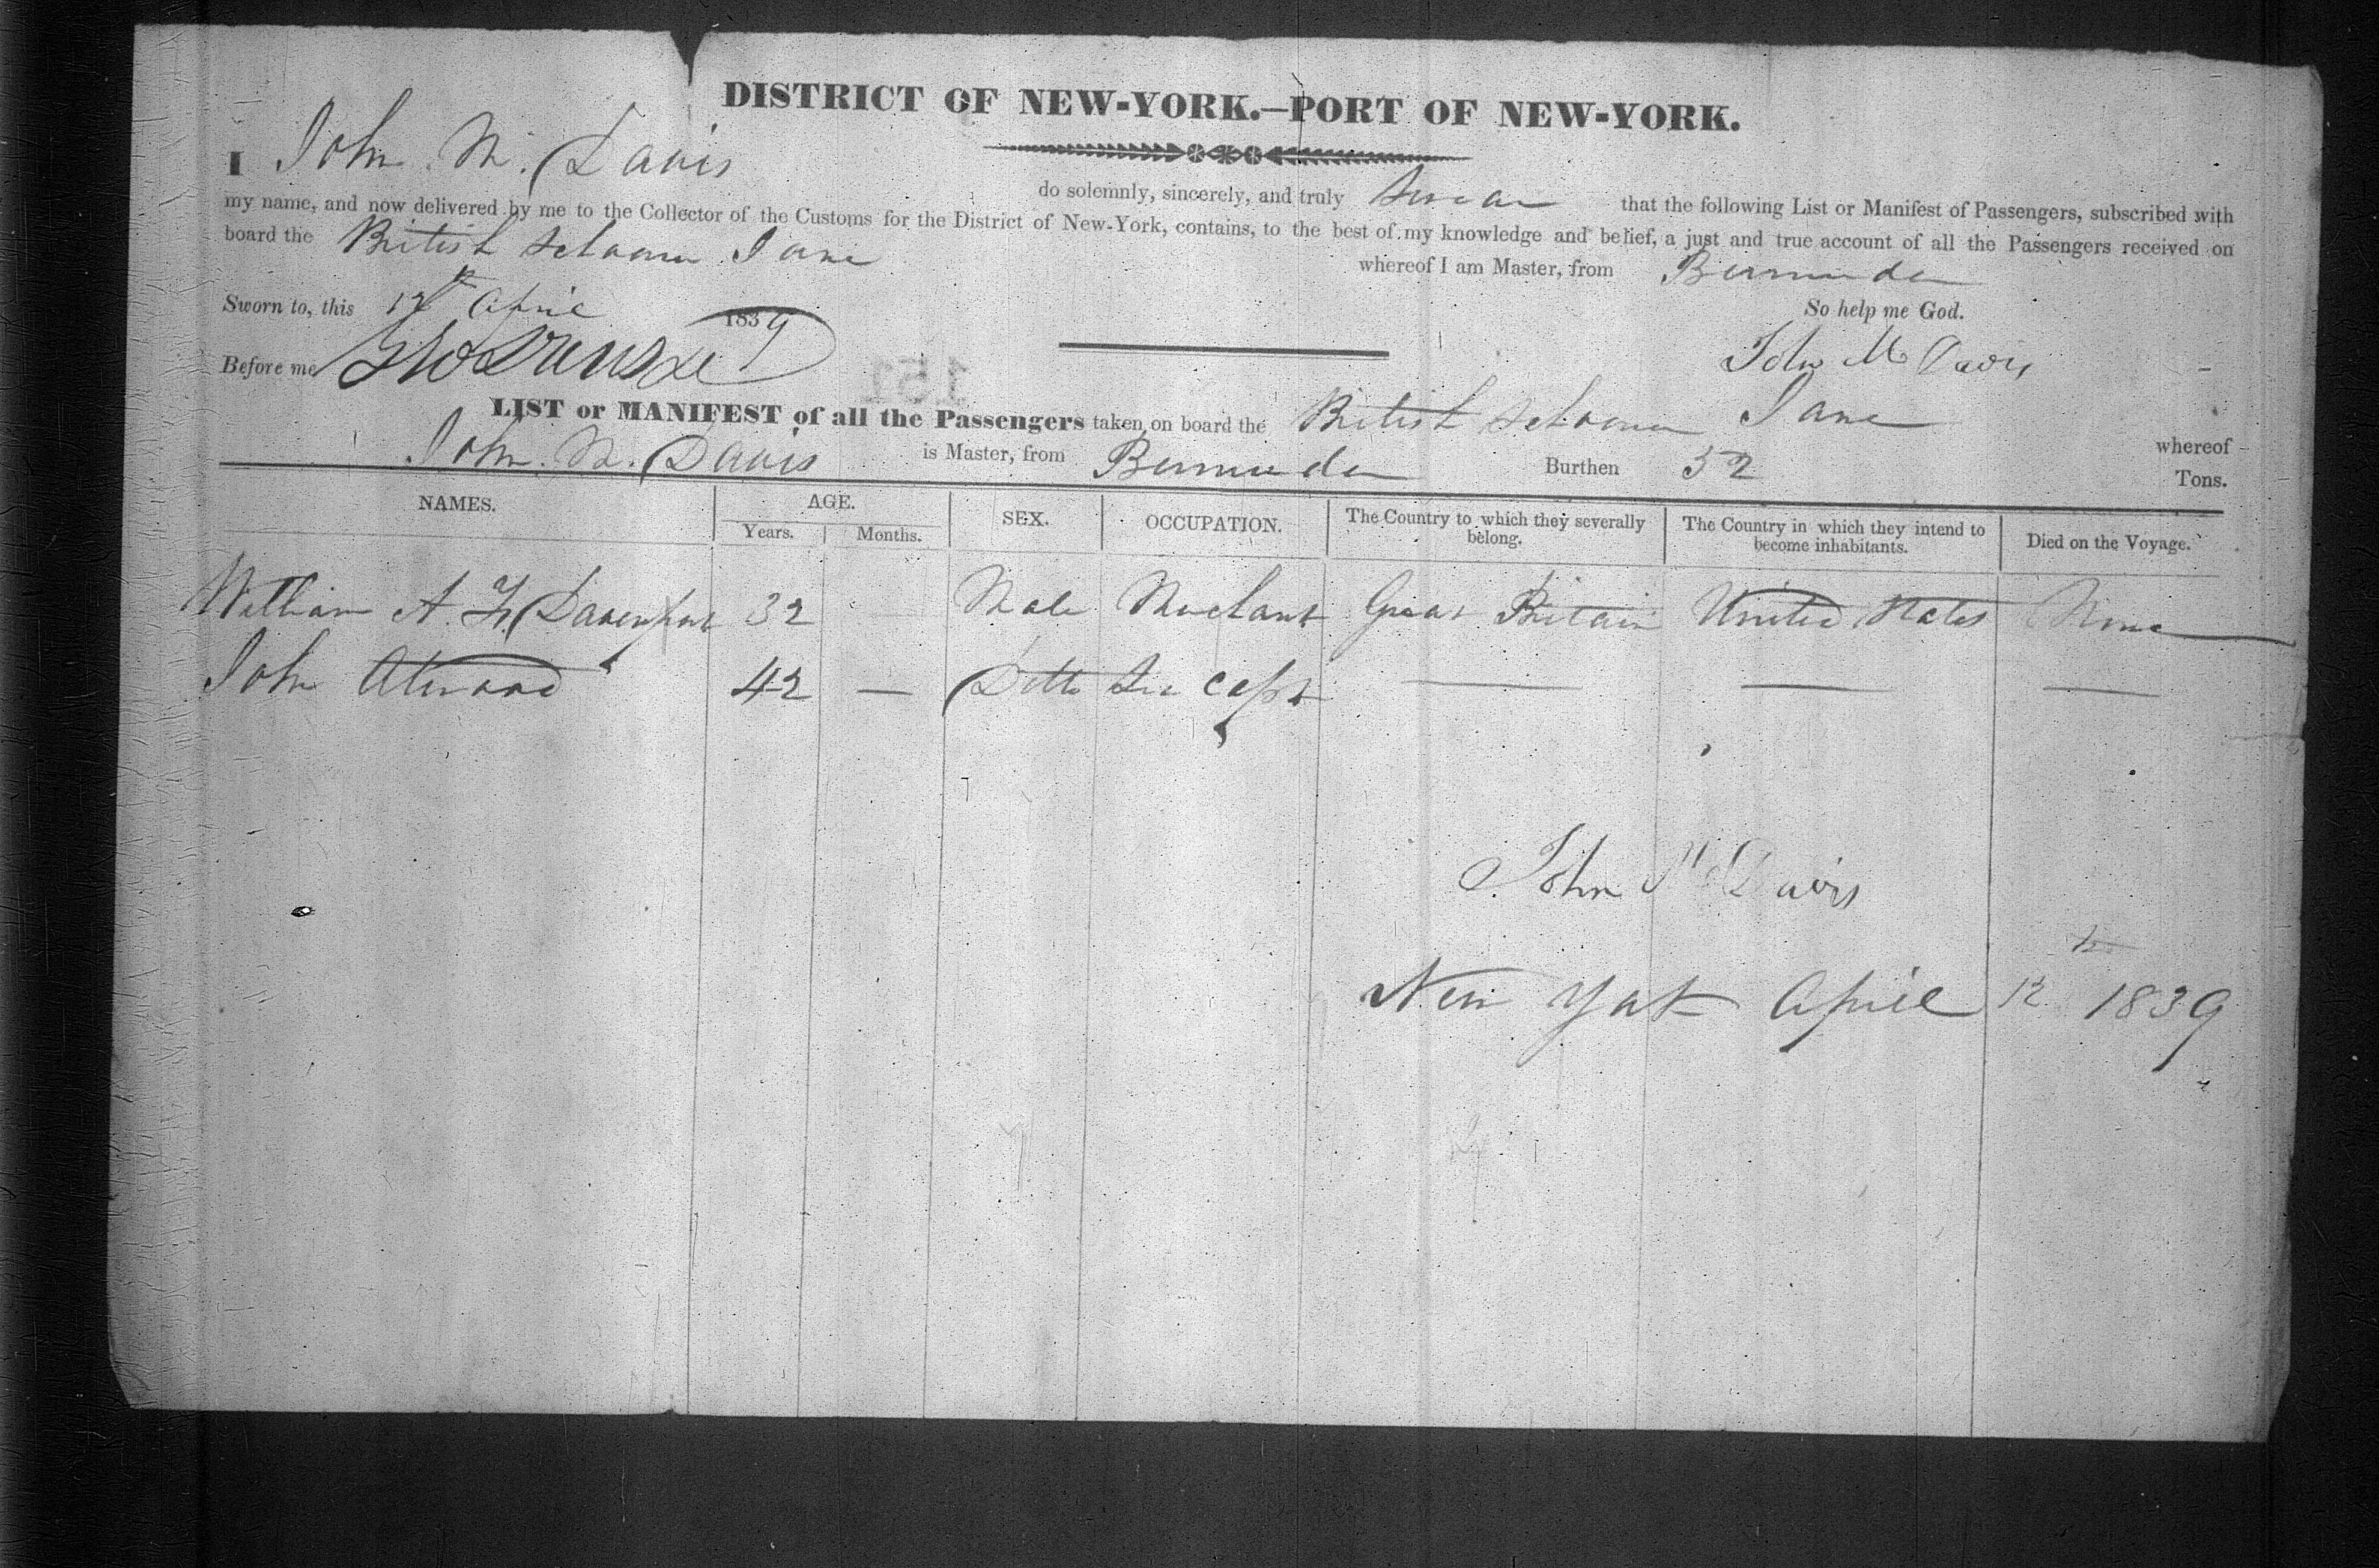 DISTRICT OF NEW-YORK.—PORT OF NEW-YORK.
I John M. Davis do solemnly, sincerely, and truly Swear that the following List or Manifest of Passengers, subscribed with
my name, and now delivered by me to the Collector of the Customs for the District of New-York, contains, to the best of my knowledge and belief, a just and true account of all the Passengers received on
board the British Schooner Jane whereof I am Master, from Bermuda
Sworn to, this 12th April 1839 So help me God.
Before me John M Davis
LIST or MANIFEST of all the Passengers taken on board the British Schooner Jane whereof
John M. Davis is Master, from Bermuda Burthen 52 Tons.
NAMES. AGE. SEX. OCCUPATION. The Country to which they severally belong. The Country in which they intend to become inhabitants. Died on the Voyage.
Years. Months.
William A. Davenport 32 Male Merchant Great Britain United States None
John Atwood 42 — Ditto Sea Capt — — —
John M Davis
New York April 12th 1839